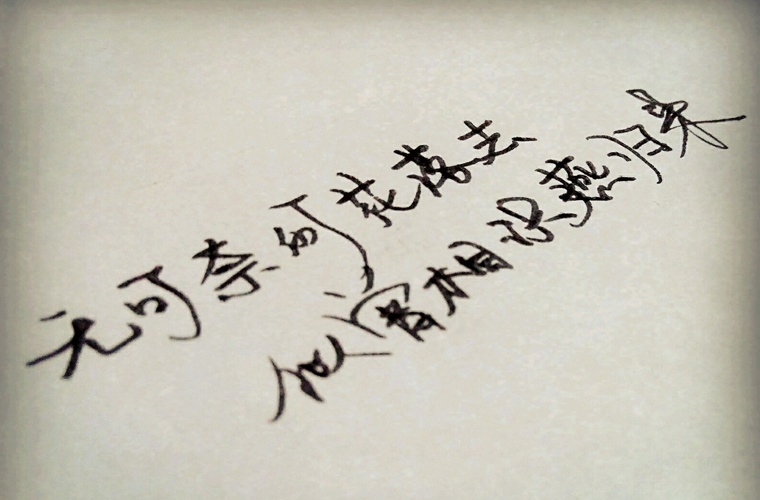 无可奈何花落去
似曾相识燕归来